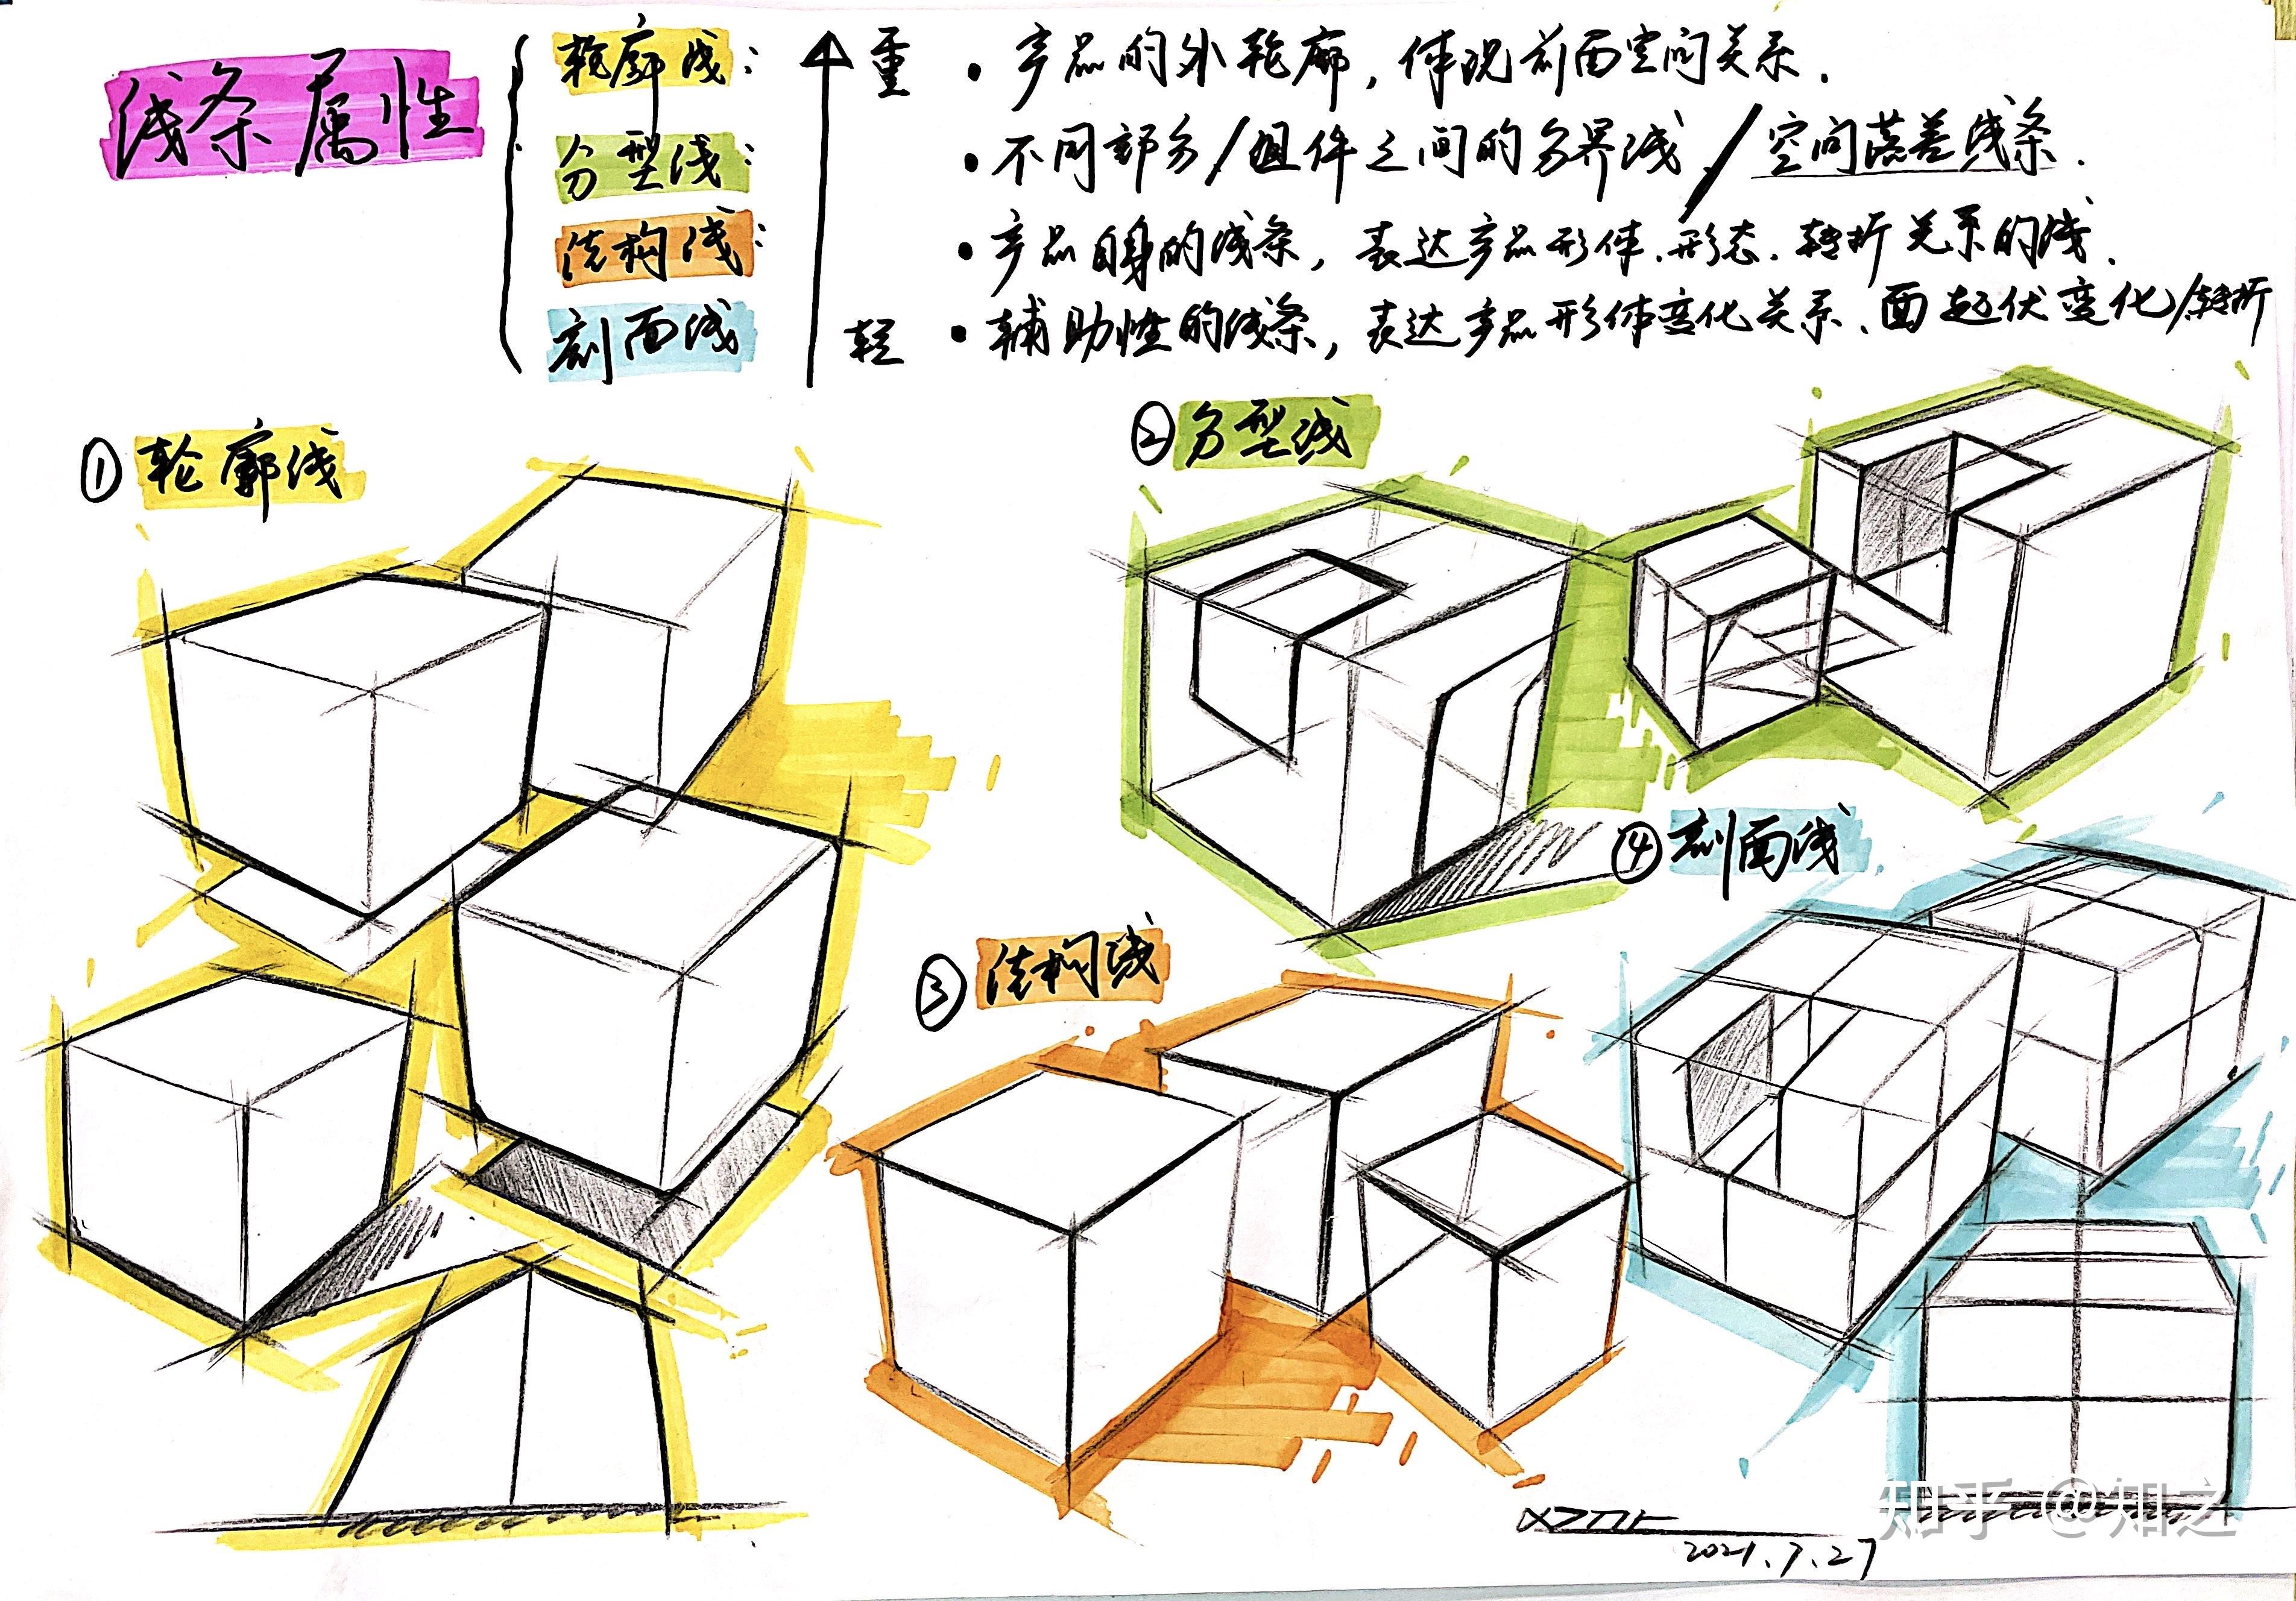 线条属性
轮廓线： 重 • 产品的外轮廓，体现前面空间关系.
分型线： • 不同部分/组件之间的分界线/空间落差线条.
结构线： • 产品自身的线条，表达产品形体.形态.转折关系的线.
剖面线 轻 • 辅助性的线条，表达产品形体变化关系、面起伏变化/转折
① 轮廓线
② 分型线
③ 结构线
④ 剖面线
知乎 @知之
2021.7.27